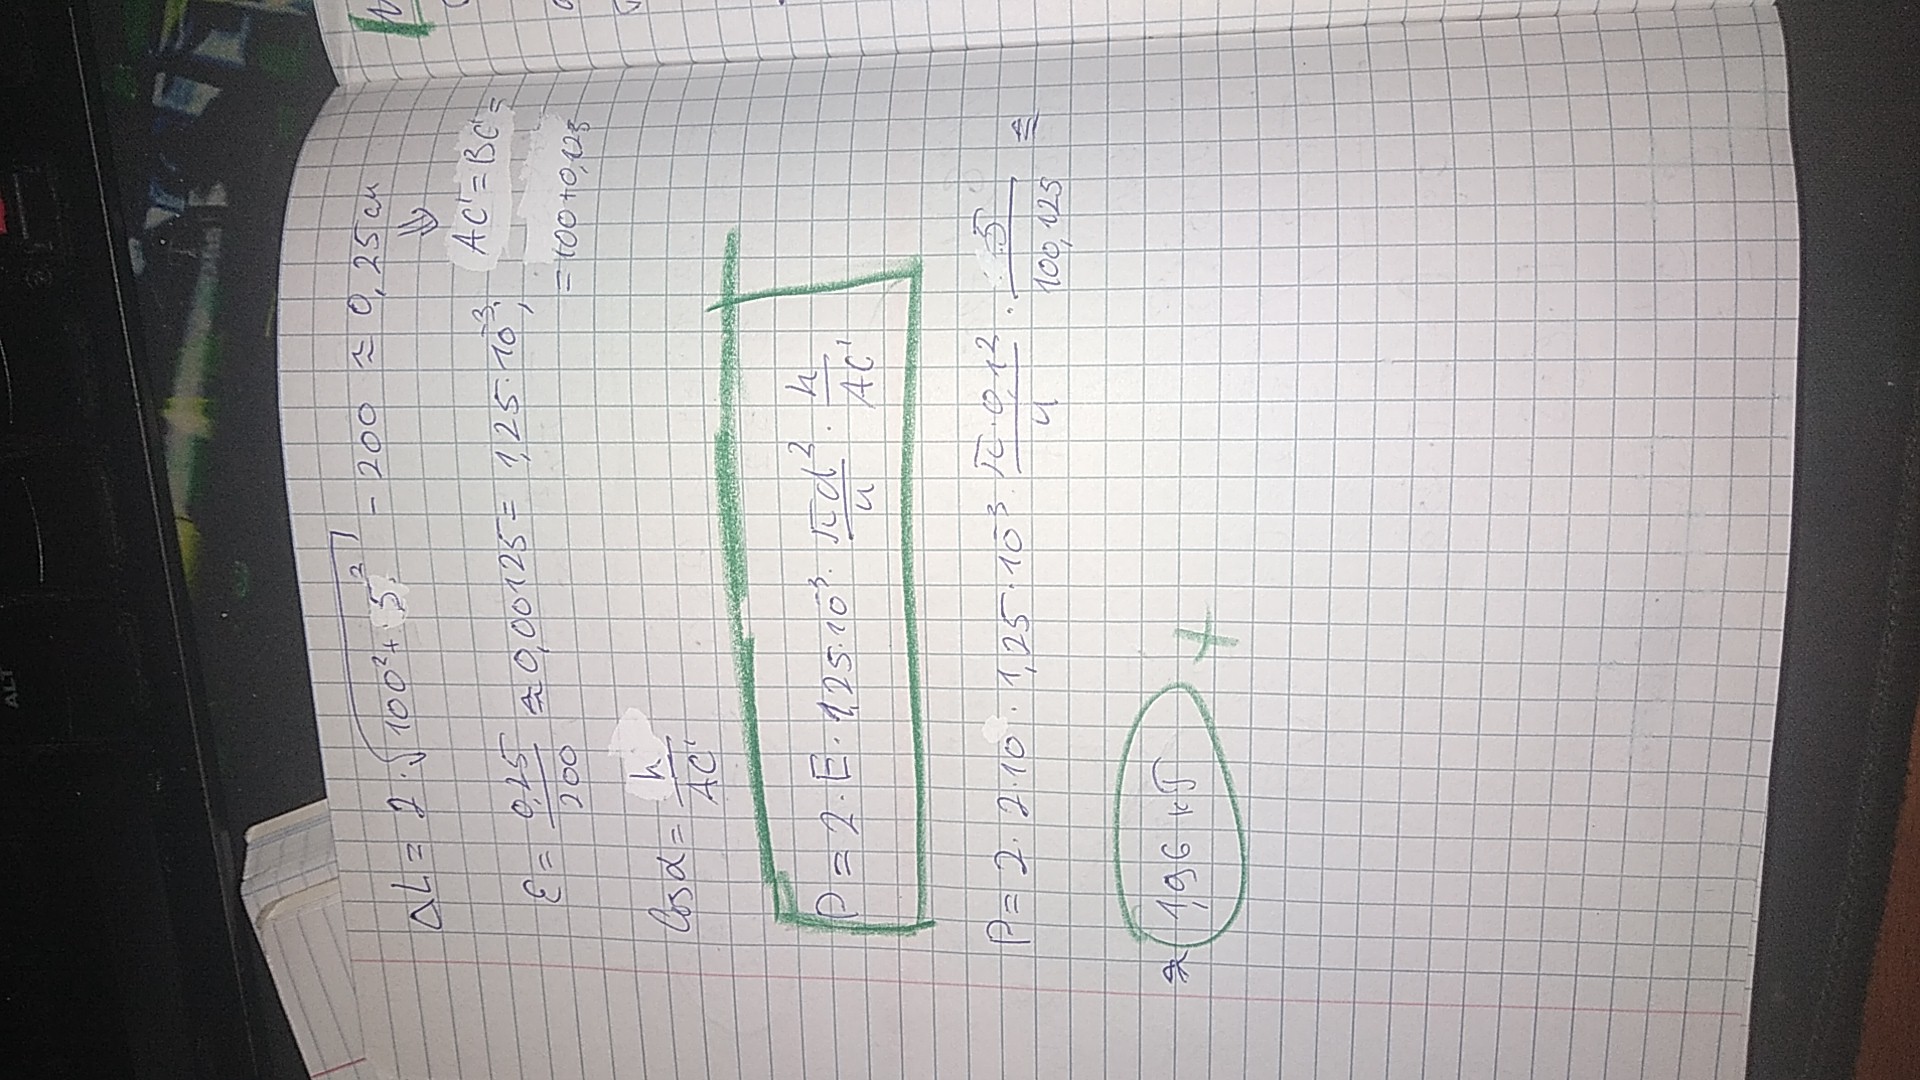 ALT
ΔL = 2·√(100² + 5²) - 200 ≈ 0,25 см
⇓
AC' = BC' =
= 100 + 0,125
ε = 0,25/200 ≈ 0,00125 = 1,25·10⁻³;
Cosα = h/AC'
P = 2·E·1,25·10⁻³·πd²/4·h/AC'
P = 2·2·10 ·1,25·10⁻³·π·0,1²/4·5/100,125 ≈
≈ 1,96 кГ +